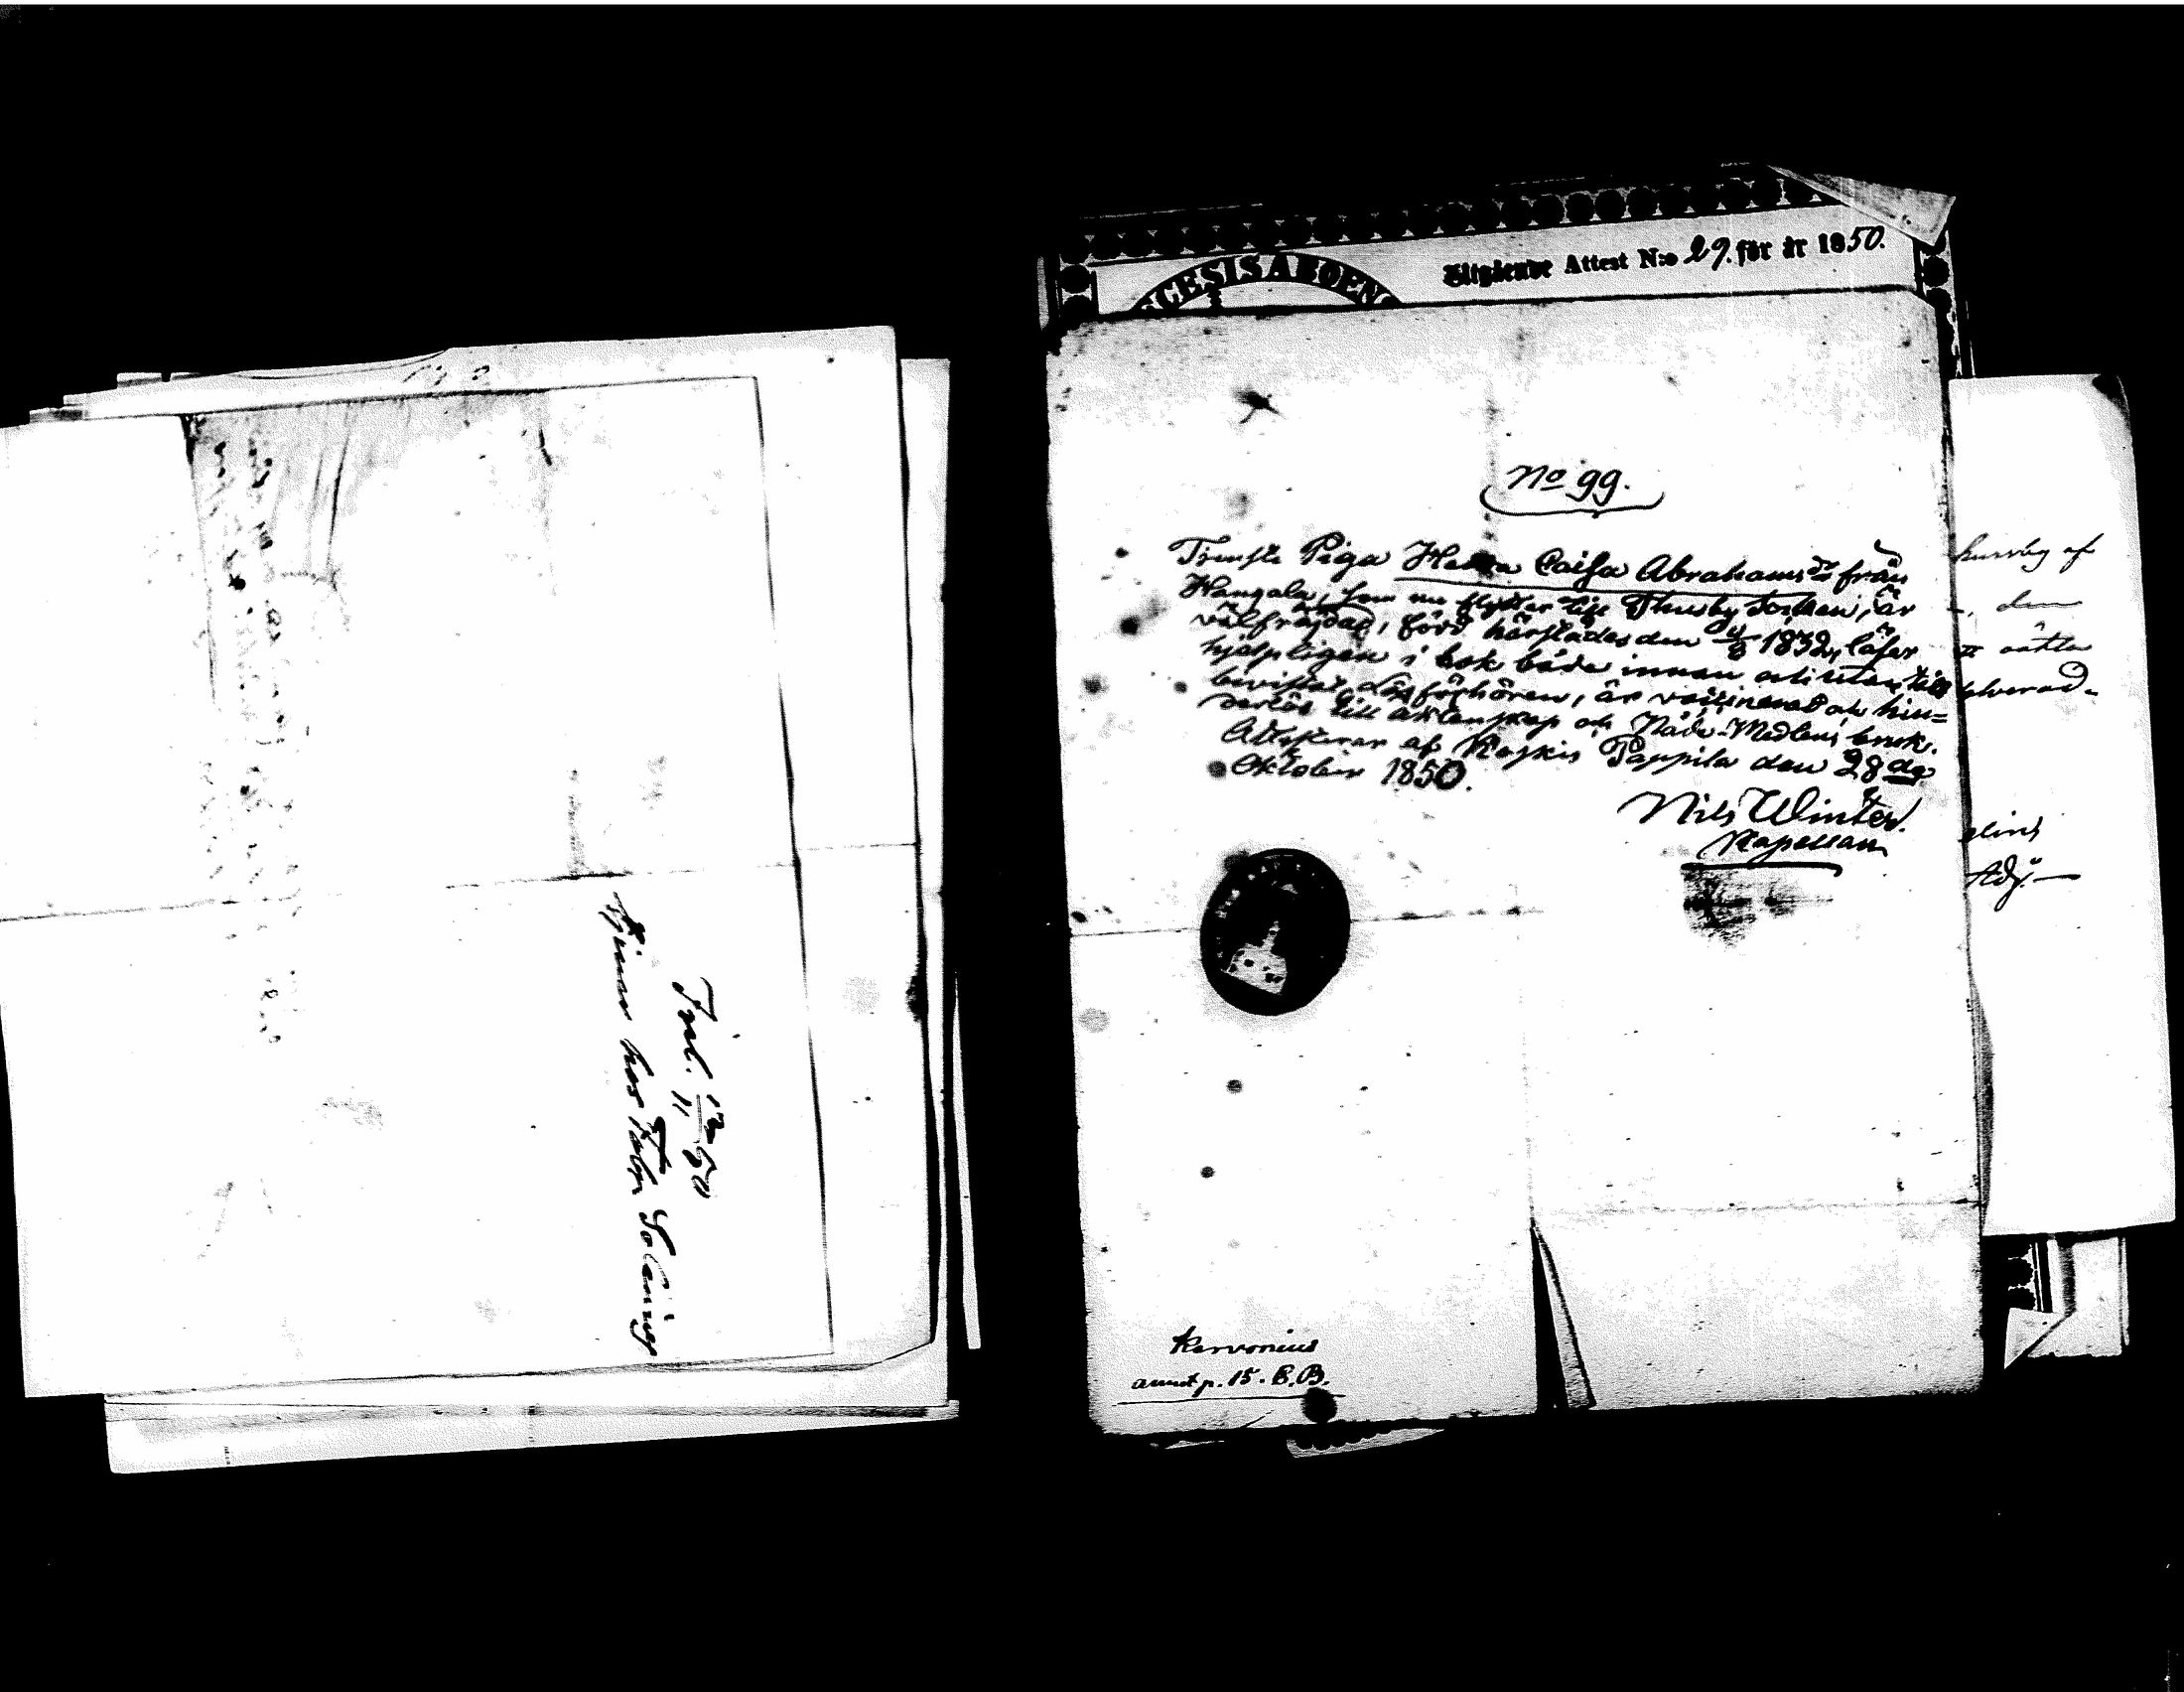 Inl. 12/11 50
tjenar hos Fabr Solening
DIOECESIS ABOENS
Utgående Attest N:o 29. för år 1850.
No 99.
Tjenste Piga Hedda Caisa Abrahamsdr från
Hangala, som nu flyttar till Thusby Socken, är
välfrejdad, född härstädes den 1832, läser
hjelpligen i bok både innan och utan till
bevistat Läsförhören, är vaccinerad och hin=
derlös till äktenskap och Nåde-Medlens bruk.
Attesterar af Koskis Pappila den 28de
Oktober 1850.
Nils Winter.
Kapellan
Kervonius
annot p. 15. E.B.
af
, den
elius
Adj.